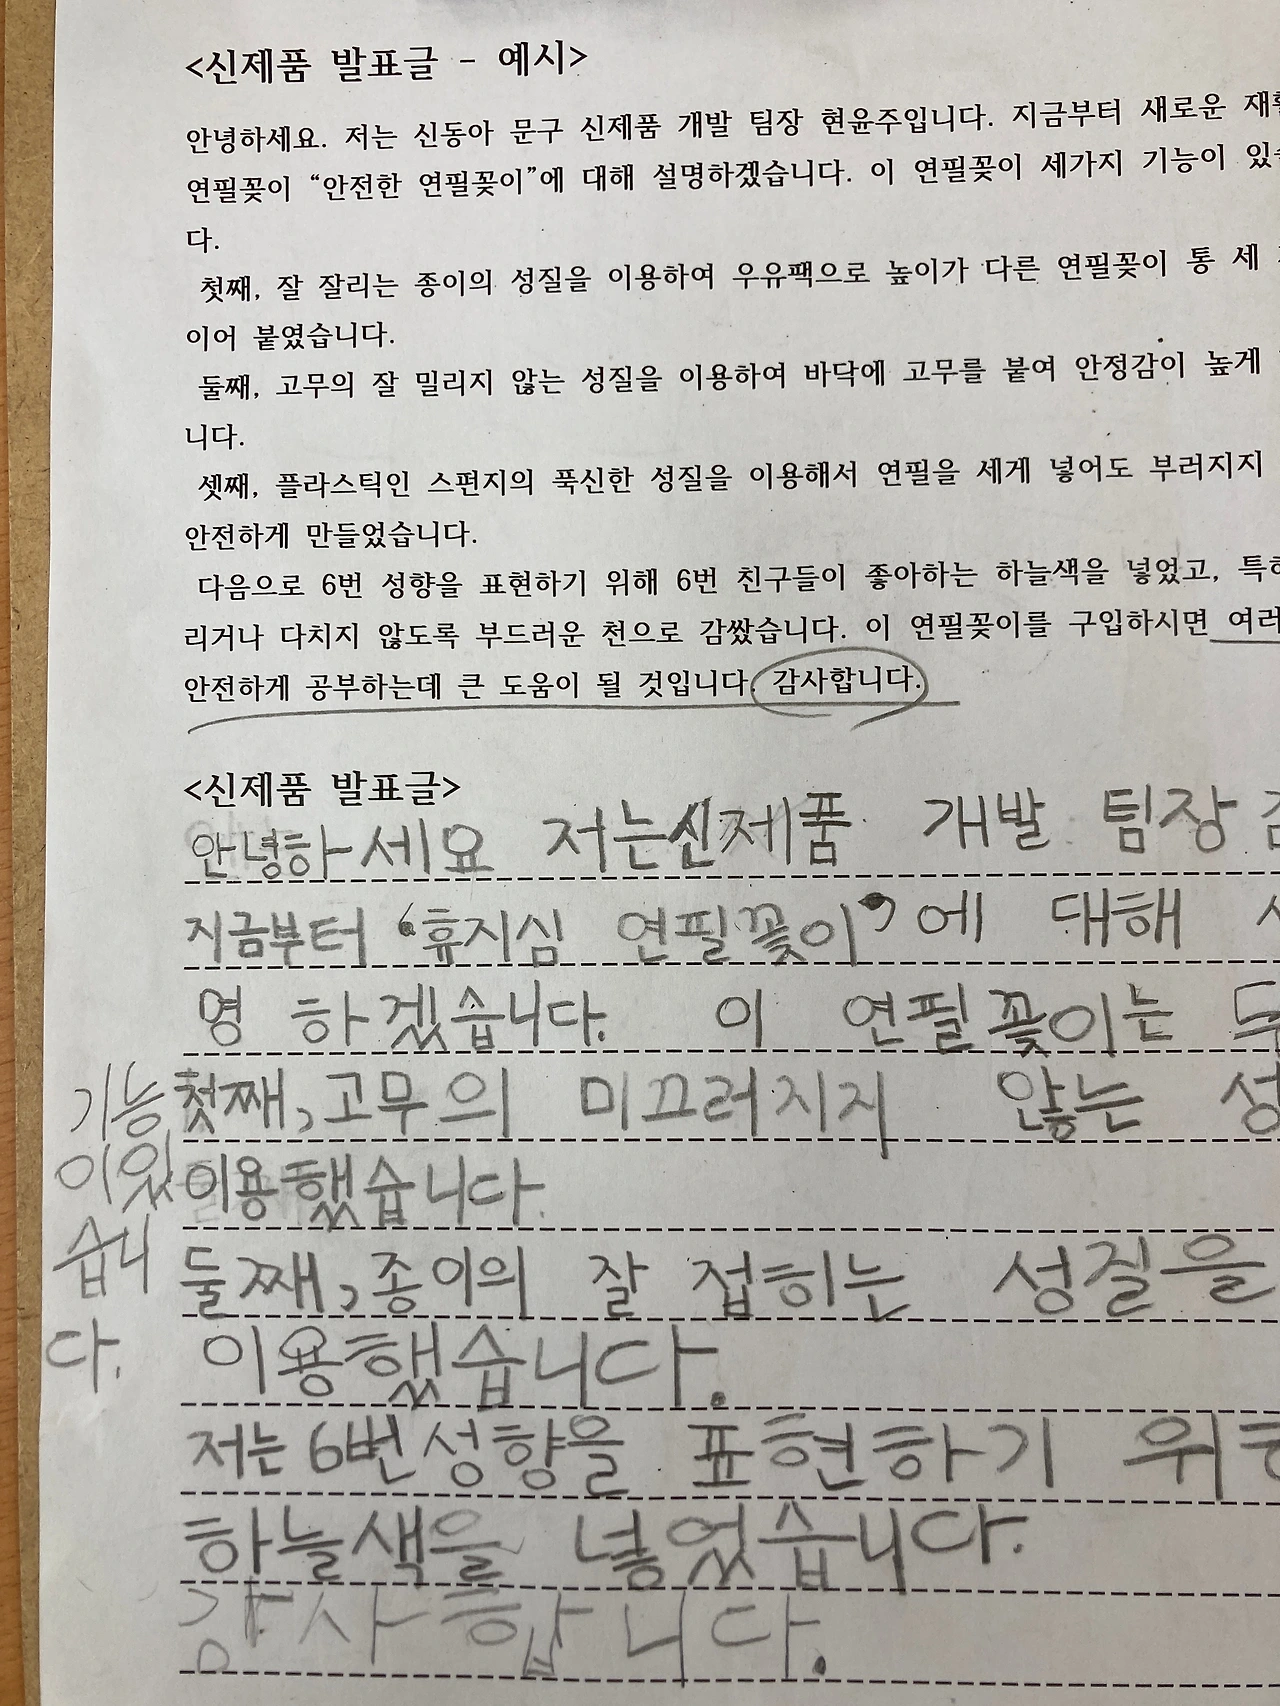 <신제품 발표글 - 예시>
안녕하세요. 저는 신동아 문구 신제품 개발 팀장 현윤주입니다. 지금부터 새로운
연필꽂이 “안전한 연필꽂이”에 대해 설명하겠습니다. 이 연필꽂이 세가지 기능이
다.
첫째, 잘 잘리는 종이의 성질을 이용하여 우유팩으로 높이가 다른 연필꽂이 통 세
이어 붙였습니다.
둘째, 고무의 잘 밀리지 않는 성질을 이용하여 바닥에 고무를 붙여 안정감이 높게
니다.
셋째, 플라스틱인 스펀지의 푹신한 성질을 이용해서 연필을 세게 넣어도 부러지지
안전하게 만들었습니다.
다음으로 6번 성향을 표현하기 위해 6번 친구들이 좋아하는 하늘색을 넣었고,
리거나 다치지 않도록 부드러운 천으로 감쌌습니다. 이 연필꽂이를 구입하시면 여러
안전하게 공부하는데 큰 도움이 될 것입니다. 감사합니다.
<신제품 발표글>
안녕하세요 저는신제품 개발 팀장
지금부터 ‘휴지심 연필꽂이’에 대해
명 하겠습니다. 이 연필꽂이는
기능
이있
습니
다.
첫째, 고무의 미끄러지지 않는
이용했습니다.
둘째, 종이의 잘 접히는 성질을
이용했습니다.
저는 6번 성향을 표현하기
하늘색을 넣었습니다.
감사합니다.